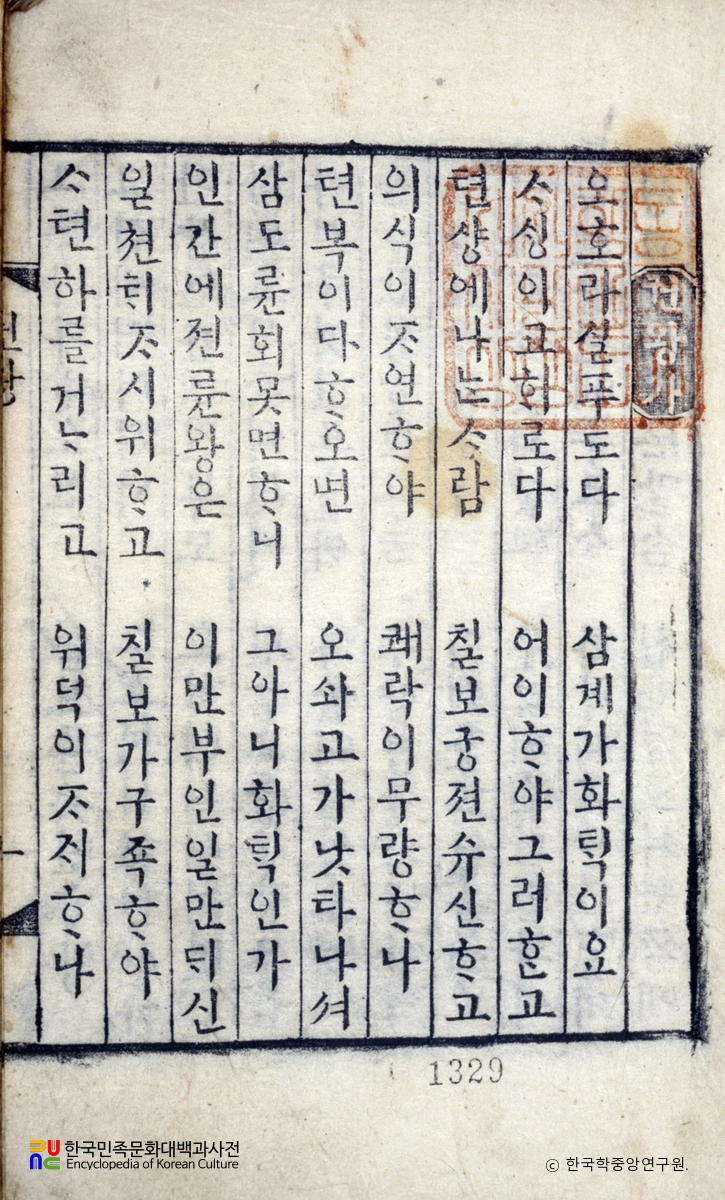 권왕가
오호라슬푸도다 삼계가화ᄐᆡᆨ이요
ᄉᆞᄉᆡᆼ이고ᄒᆡ로다 어이ᄒᆞ야그러ᄒᆞᆫ고
텬샹에나는ᄉᆞ람 칠보궁젼슈신ᄒᆞ고
의식이ᄌᆞ연ᄒᆞ야 쾌락이무량ᄒᆞ나
텬복이다ᄒᆞ오면 오솨고가낫타나셔
삼도륜회못면ᄒᆞ니 그아니화ᄐᆡᆨ인가
인간에젼륜왕은 이만부인일만ᄃᆡ신
일쳔ᄐᆡᄌᆞ시위ᄒᆞ고 칠보가구죡ᄒᆞ야
ᄉᆞ텬하를거ᄂᆞ리고 위덕이ᄌᆞᄌᆡᄒᆞ나
1329
한국민족문화대백과사전
Encyclopedia of Korean Culture
ⓒ 한국학중앙연구원.